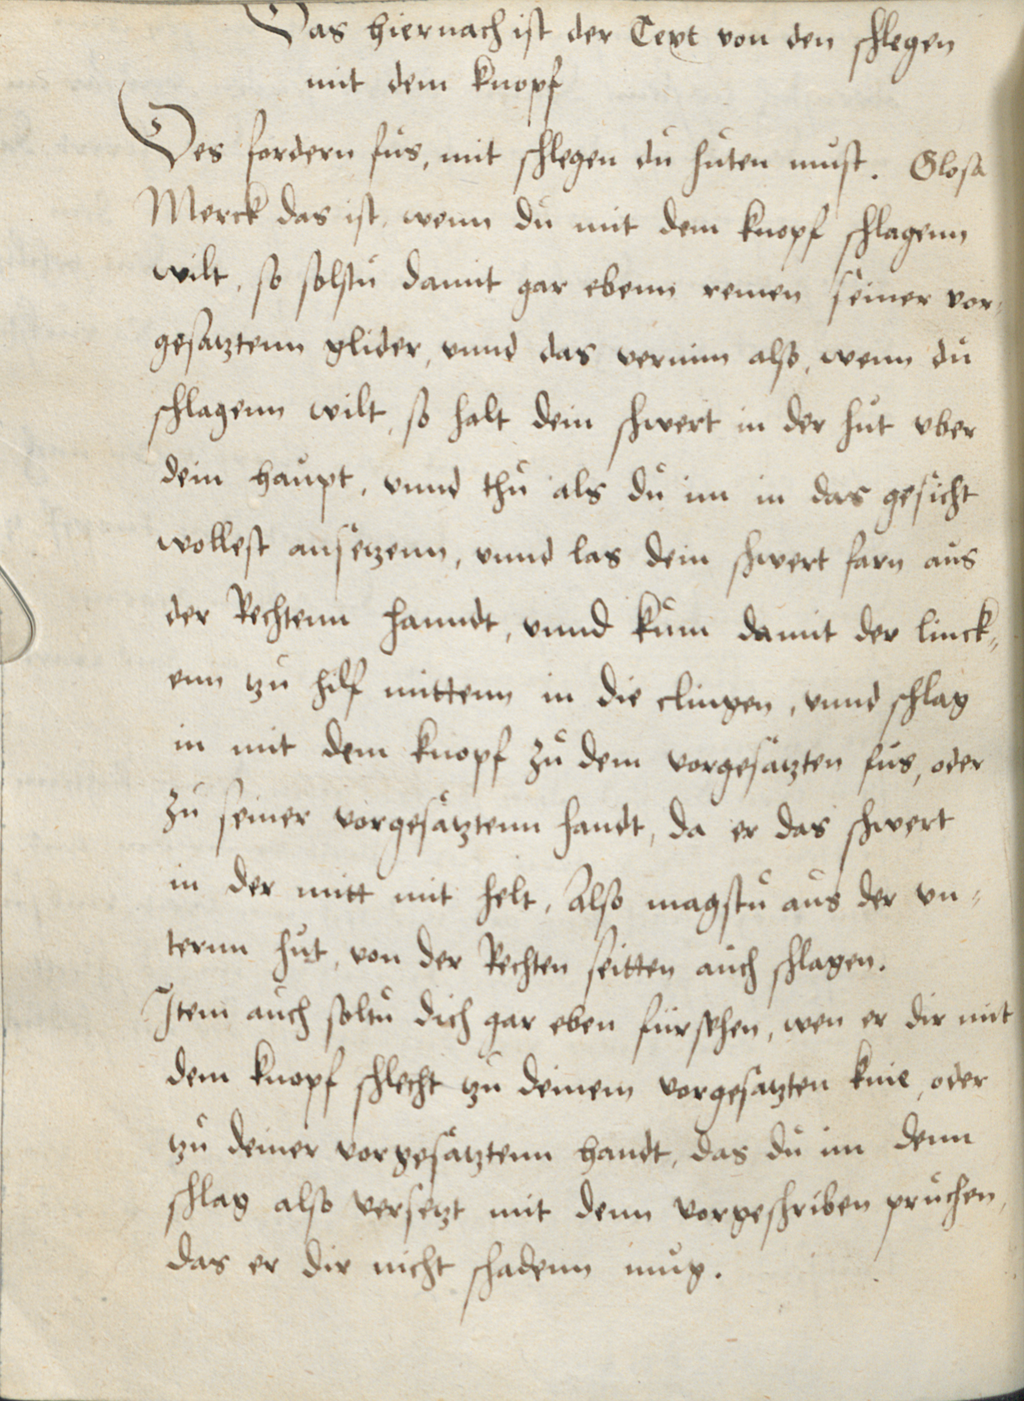 Das hiernach ist der Text von den schlegen
mit dem knopf
Des fordern fus, mit schlegen du huten must. Glosa
Merck das ist, wenn du mit dem knopf schlagenn
wilt, so solstu damit gar ebenn remen seiner vor-
gesatztenn glider, vnnd das vernim also, wenn du
schlagenn wilt, so halt dein schwert in der hut vber
dein haupt, vnnd thu als du im in das gesicht
wollest ansetzenn, vnnd las dein schwert farn aus
der Rechtenn hanndt, vnnd kum damit der linck-
enn tzu hilf mittenn in die clingen, vnnd schlag
in mit dem knopf zu dem vorgesatzten fus, oder
zu seiner vorgesatztenn handt, da er das schwert
in der mitt mit helt, Also magstu aus der vn-
ternn hut, von der Rechten seitten auch schlagen.
Item auch soltu dich gar eben fürsehen, wen er dir mit
dem knopf schlecht tzu deinem vorgesatzten knie, oder
tzu deiner vorgesatztenn handt, das du im denn
schlag also versetzt mit denn vorgeschriben pruchen,
das er dir nicht schadenn mug.